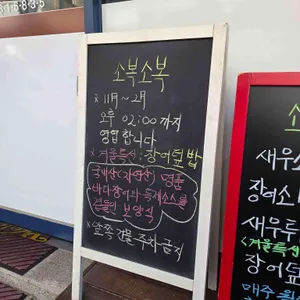 소복소복
※ 11月~2月
오후 02:00까지
영업합니다
※겨울특선: 장어덮밥
국내산(자연산) 명품
바다장어와 특제소스를
곁들인 보양식
※앞쪽 건물 주차금지
새우
장어
새우
(겨울특선)
장어덮
매주